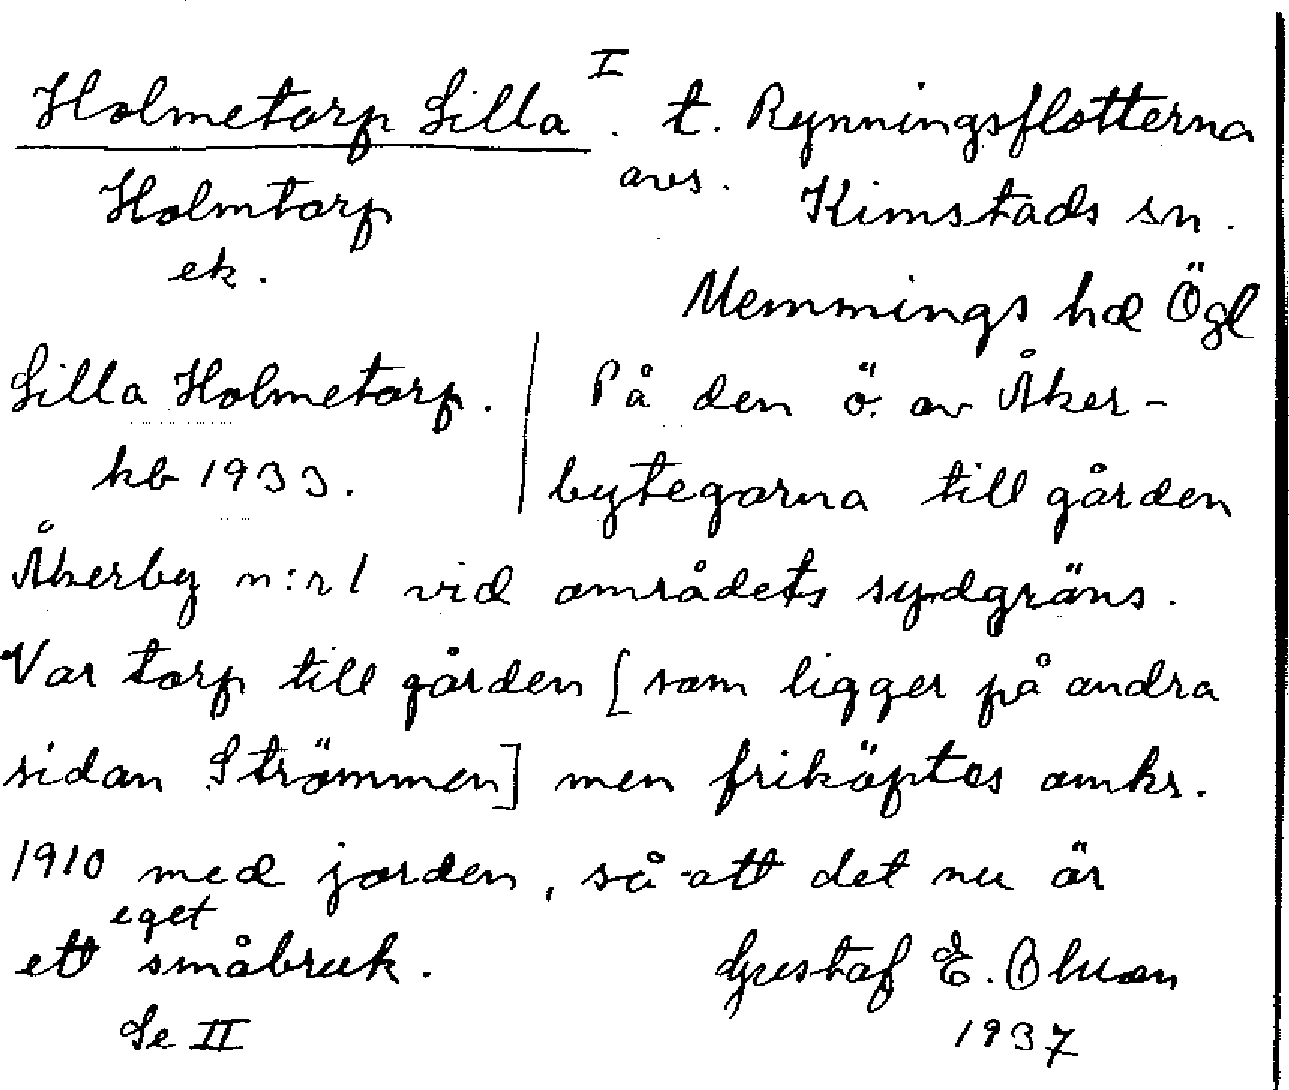 Holmetorp Lilla I. t. Rynningsflotterna
Holmtorp avs. Kimstads sn.
ek.
Memmings hd Ögl
Lilla Holmetorp. | På den ö. av Åker-
kb 1933. | bytegarna till gården
Åkerby n:r 1 vid områdets sydgräns.
Var torp till gården [som ligger på andra
sidan Strömmen] men friköptes omkr.
1910 med jorden, så att det nu är
ett eget småbruk. Gustaf E. Bluan
Se II 1937